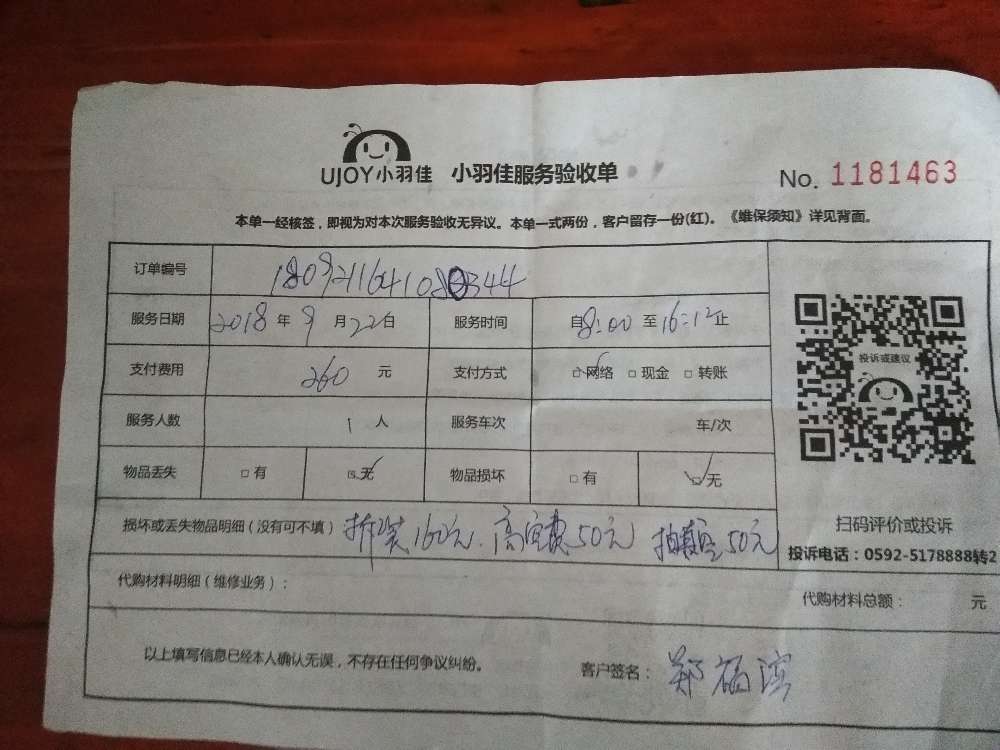 UJOY小羽佳 小羽佳服务验收单 No. 1181463
本单一经核签，即视为对本次服务验收无异议。本单一式两份，客户留存一份(红)。《维保须知》详见背面。
订单编号 180921164108344
服务日期 2018年9月22日 服务时间 自8:00至16:12止
支付费用 260元 支付方式 网络 现金 转账
服务人数 1人 服务车次 车/次
物品丢失 有 无 物品损坏 有 无
投诉或建议
损坏或丢失物品明细（没有可不填） 拆装160元、高空费50元 抽真空50元
扫码评价或投诉
投诉电话：0592-5178888转2
代购材料明细（维修业务）：
代购材料总额： 元
以上填写信息已经本人确认无误，不存在任何争议纠纷。 客户签名： 郑福滨